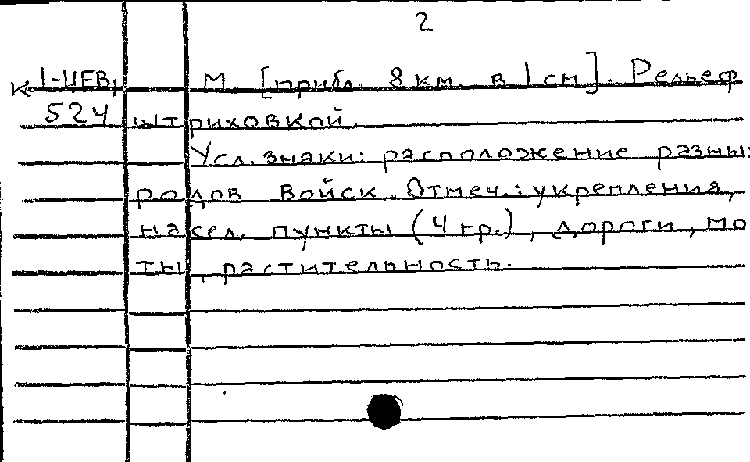 2
К 1-ЦЕВ, М. [прибл. 8 км. в 1 см]. Рельеф
524 штриховкой.
Усл. знаки: расположение разны
родов войск. Отмеч.: укрепления,
насел. пункты (4 гр.), дороги, мо
ты, растительность.